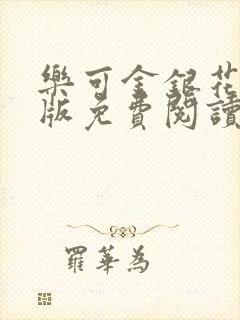 樂可金銀花
版免費閱讀
羅華為